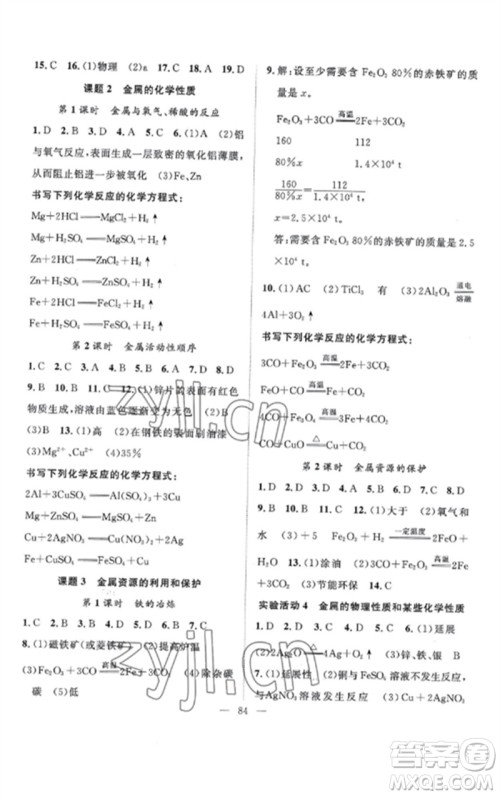 15. C　16. (1)物理　(2)ε　17. C　18. C　19. D
课题 2　金属的化学性质
第 1 课时　金属与氧气、稀酸的反应
与氧气反应，表面生成一层致密的氧化铝薄膜，
从而阻止铝进一步被氧化　(3)Fe、Zn
书写下列化学反应的化学方程式：
Mg＋2HCl══MgCl₂＋H₂↑
Mg＋H₂SO₄══MgSO₄＋H₂↑
Zn＋2HCl══ZnCl₂＋H₂↑
Zn＋H₂SO₄══ZnSO₄＋H₂↑
Fe＋2HCl══FeCl₂＋H₂↑
Fe＋H₂SO₄══FeSO₄＋H₂↑
第 2 课时　金属活动性顺序
1. C　2. D　3. C　4. B　5. C　6. D　7. D　8. D
9. B　10. A　11. D　12. (1)锌片的表面有红色
物质生成，溶液由蓝色逐渐变为无色　(2)B
(3)B　13. (1)金　(2)在钢铁的表面刷油漆
(3)Mg²⁺、Cu²⁺　(4)35%
书写下列化学反应的化学方程式：
2Al＋3CuSO₄══Al₂(SO₄)₃＋3Cu
Mg＋ZnSO₄══MgSO₄＋Zn
Zn＋CuSO₄══ZnSO₄＋Cu
Cu＋2AgNO₃══Cu(NO₃)₂＋2Ag
Fe＋CuSO₄══FeSO₄＋Cu
课题 3　金属资源的利用和保护
第 1 课时　铁的冶炼
1. C　2. C　3. B　4. D　5. D　6. B　7. C
8. (1)磁铁矿(或菱铁矿)　(2)提高炉温
(3)Fe₂O₃＋3CO 高温══ 2Fe＋3CO₂　(4)除杂碳
碳　(5)低
9. 解：设至少需要含 Fe₂O₃ 80%的赤铁矿的
质量是 x。
Fe₂O₃＋3CO 高温══ 2Fe＋3CO₂
160　112
80%x　1.4×10⁴ t
160/80%x＝112/1.4×10⁴ t
x＝2.5×10⁴ t
答：需要含 Fe₂O₃ 80%的赤铁矿的质量是 2.5
×10⁴ t。
10. (1)AC　(2)TiCl₂　有　(3)2Al₂O₃ 通电══熔融
4Al＋3O₂↑
书写下列化学反应的化学方程式：
3CO＋Fe₂O₃ 高温══ 2Fe＋3CO₂
FeO＋CO 高温══ Fe＋CO₂
4CO＋Fe₃O₄ 高温══ 3Fe＋4CO₂
CO＋CuO △══ Cu＋CO₂
第 2 课时　金属资源的保护
水　(2)5　(3)Fe₂O₃＋H₂ 一定温度══ 2FeO＋
H₂O　13. (1)涂油　(2)Fe₂O₃＋3CO 高温══
2Fe＋3CO₂　(3)不能　14. C
实验活动 4　金属的物理性质和某些化学性质
1. C　2. B　3. A　4. C　5. C　6. C　7. (1)延展
(2)2Ag₂O △══ 4Ag＋O₂↑　(3)锌、铁、银　(4)B
8. (1)延展性　(2)Ag 与 FeSO₄ 溶液不发生反
应，与AgNO₃溶液发生反应　(3)ABCD
84
zyjl.cn
zyjl.cn
答案圈
MXQE.COM